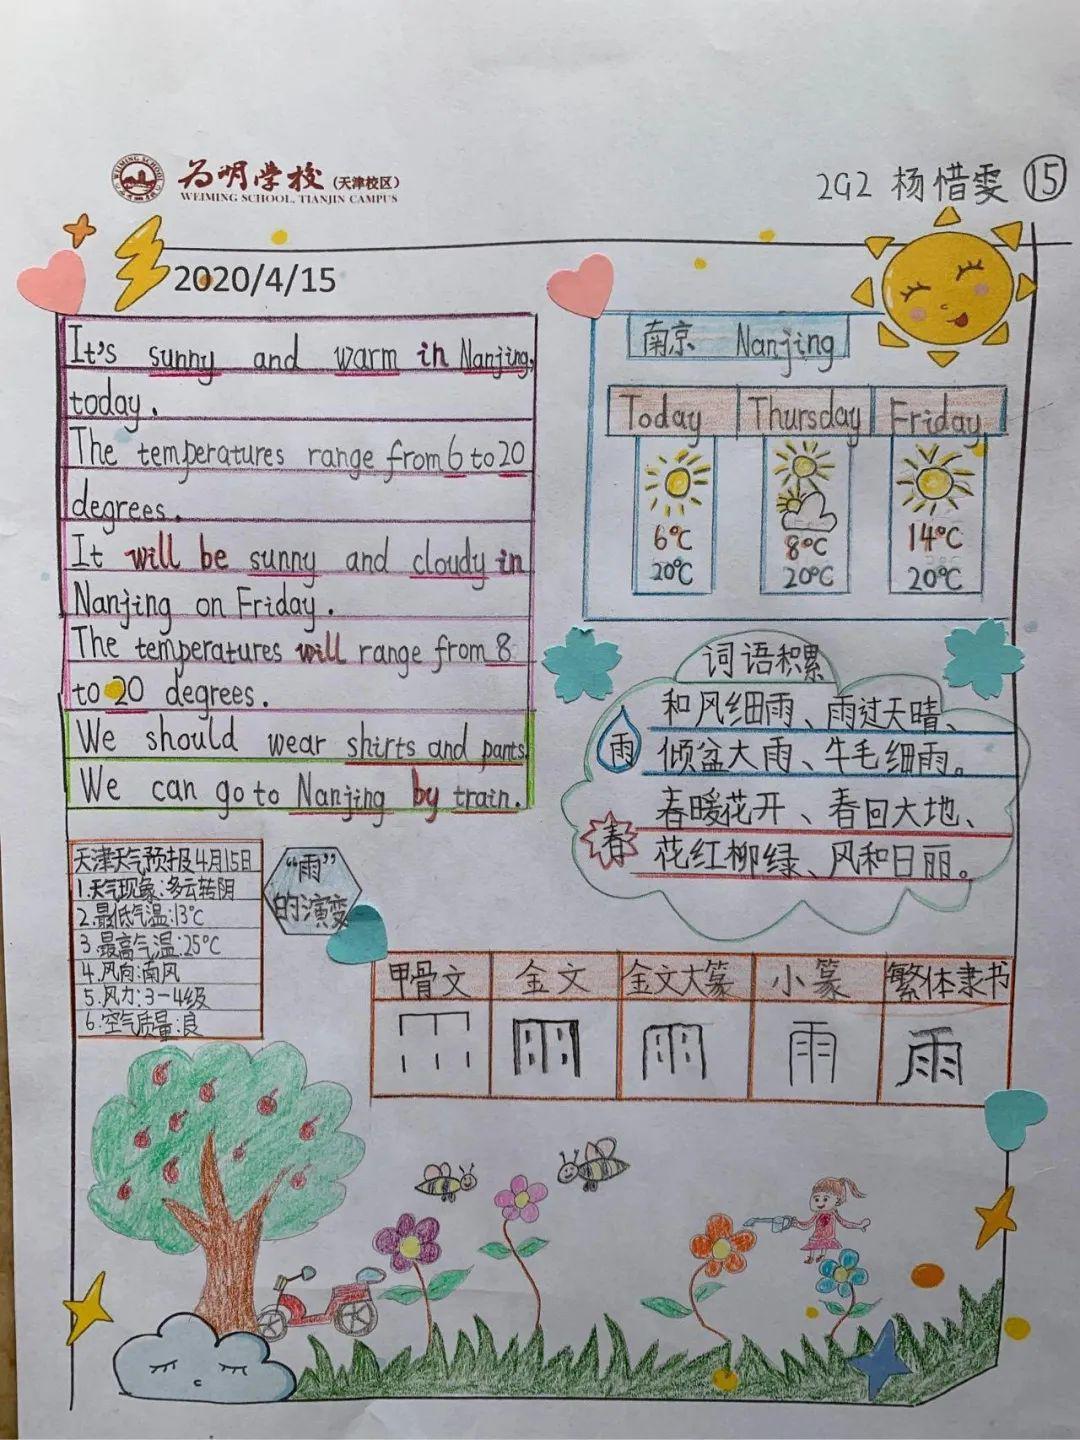 WEIMING SCHOOL
为明学校(天津校区)
WEIMING SCHOOL, TIANJIN CAMPUS
2G2 杨惜雯 15
2020/4/15
It's sunny and warm in Nanjing,
today.
The temperatures range from 6 to 20
degrees.
It will be sunny and cloudy in
Nanjing on Friday.
The temperatures will range from 8
to 20 degrees.
We should wear shirts and pants.
We can go to Nanjing by train.
南京 Nanjing
Today Thursday Friday
6℃ 8℃ 14℃
20℃ 20℃ 20℃
词语积累
雨
和风细雨、雨过天晴、
倾盆大雨、牛毛细雨。
春
春暖花开、春回大地、
花红柳绿、风和日丽。
天津天气预报4月15日
1.天气现象:多云转阴
2.最低气温:13℃
3.最高气温:25℃
4.风向:南风
5.风力:3-4级
6.空气质量:良
“雨”
的演变
甲骨文 金文 金文大篆 小篆 繁体隶书
雨 雨